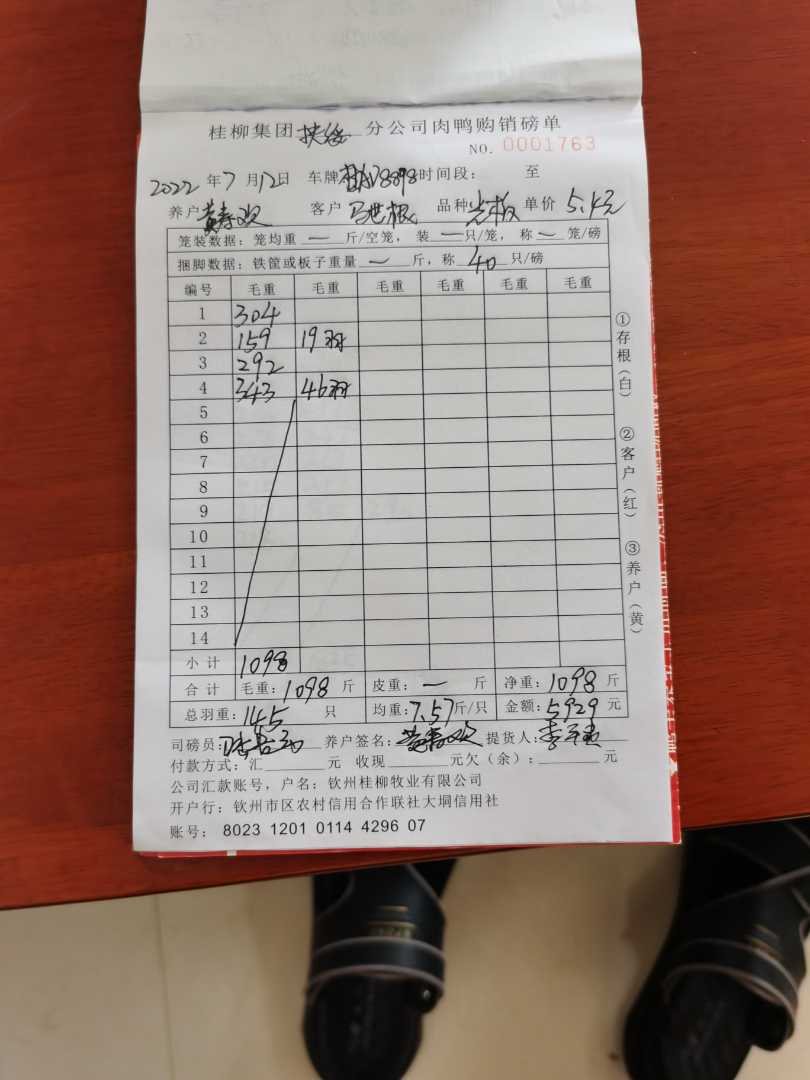 桂柳集团扶绥分公司肉鸭购销磅单
NO. 0001763
2022年7月12日 车牌 时间段： 至
养户黄春欢 客户马世根 品种光板 单价5.4元
笼装数据：笼均重 一 斤/空笼，装 一 只/笼，称 一 笼/磅
捆脚数据：铁筐或板子重量 一 斤，称 40 只/磅
编号 毛重 毛重 毛重 毛重 毛重 毛重
1 304
2 159 19羽
3 292
4 343 46羽
5
6
7
8
9
10
11
12
13
14
小计 1098
合计 毛重：1098斤 皮重：一 斤 净重：1098斤
总羽重：145只 均重：7.57斤/只 金额：5929元
司磅员： 养户签名：黄春欢 提货人：
付款方式：汇 元 收现 元欠（余）： 元
公司汇款账号，户名：钦州桂柳牧业有限公司
开户行：钦州市区农村信用合作联社大垌信用社
账号： 8023 1201 0114 4296 07
①存根（白）
②客户（红）
③养户（黄）